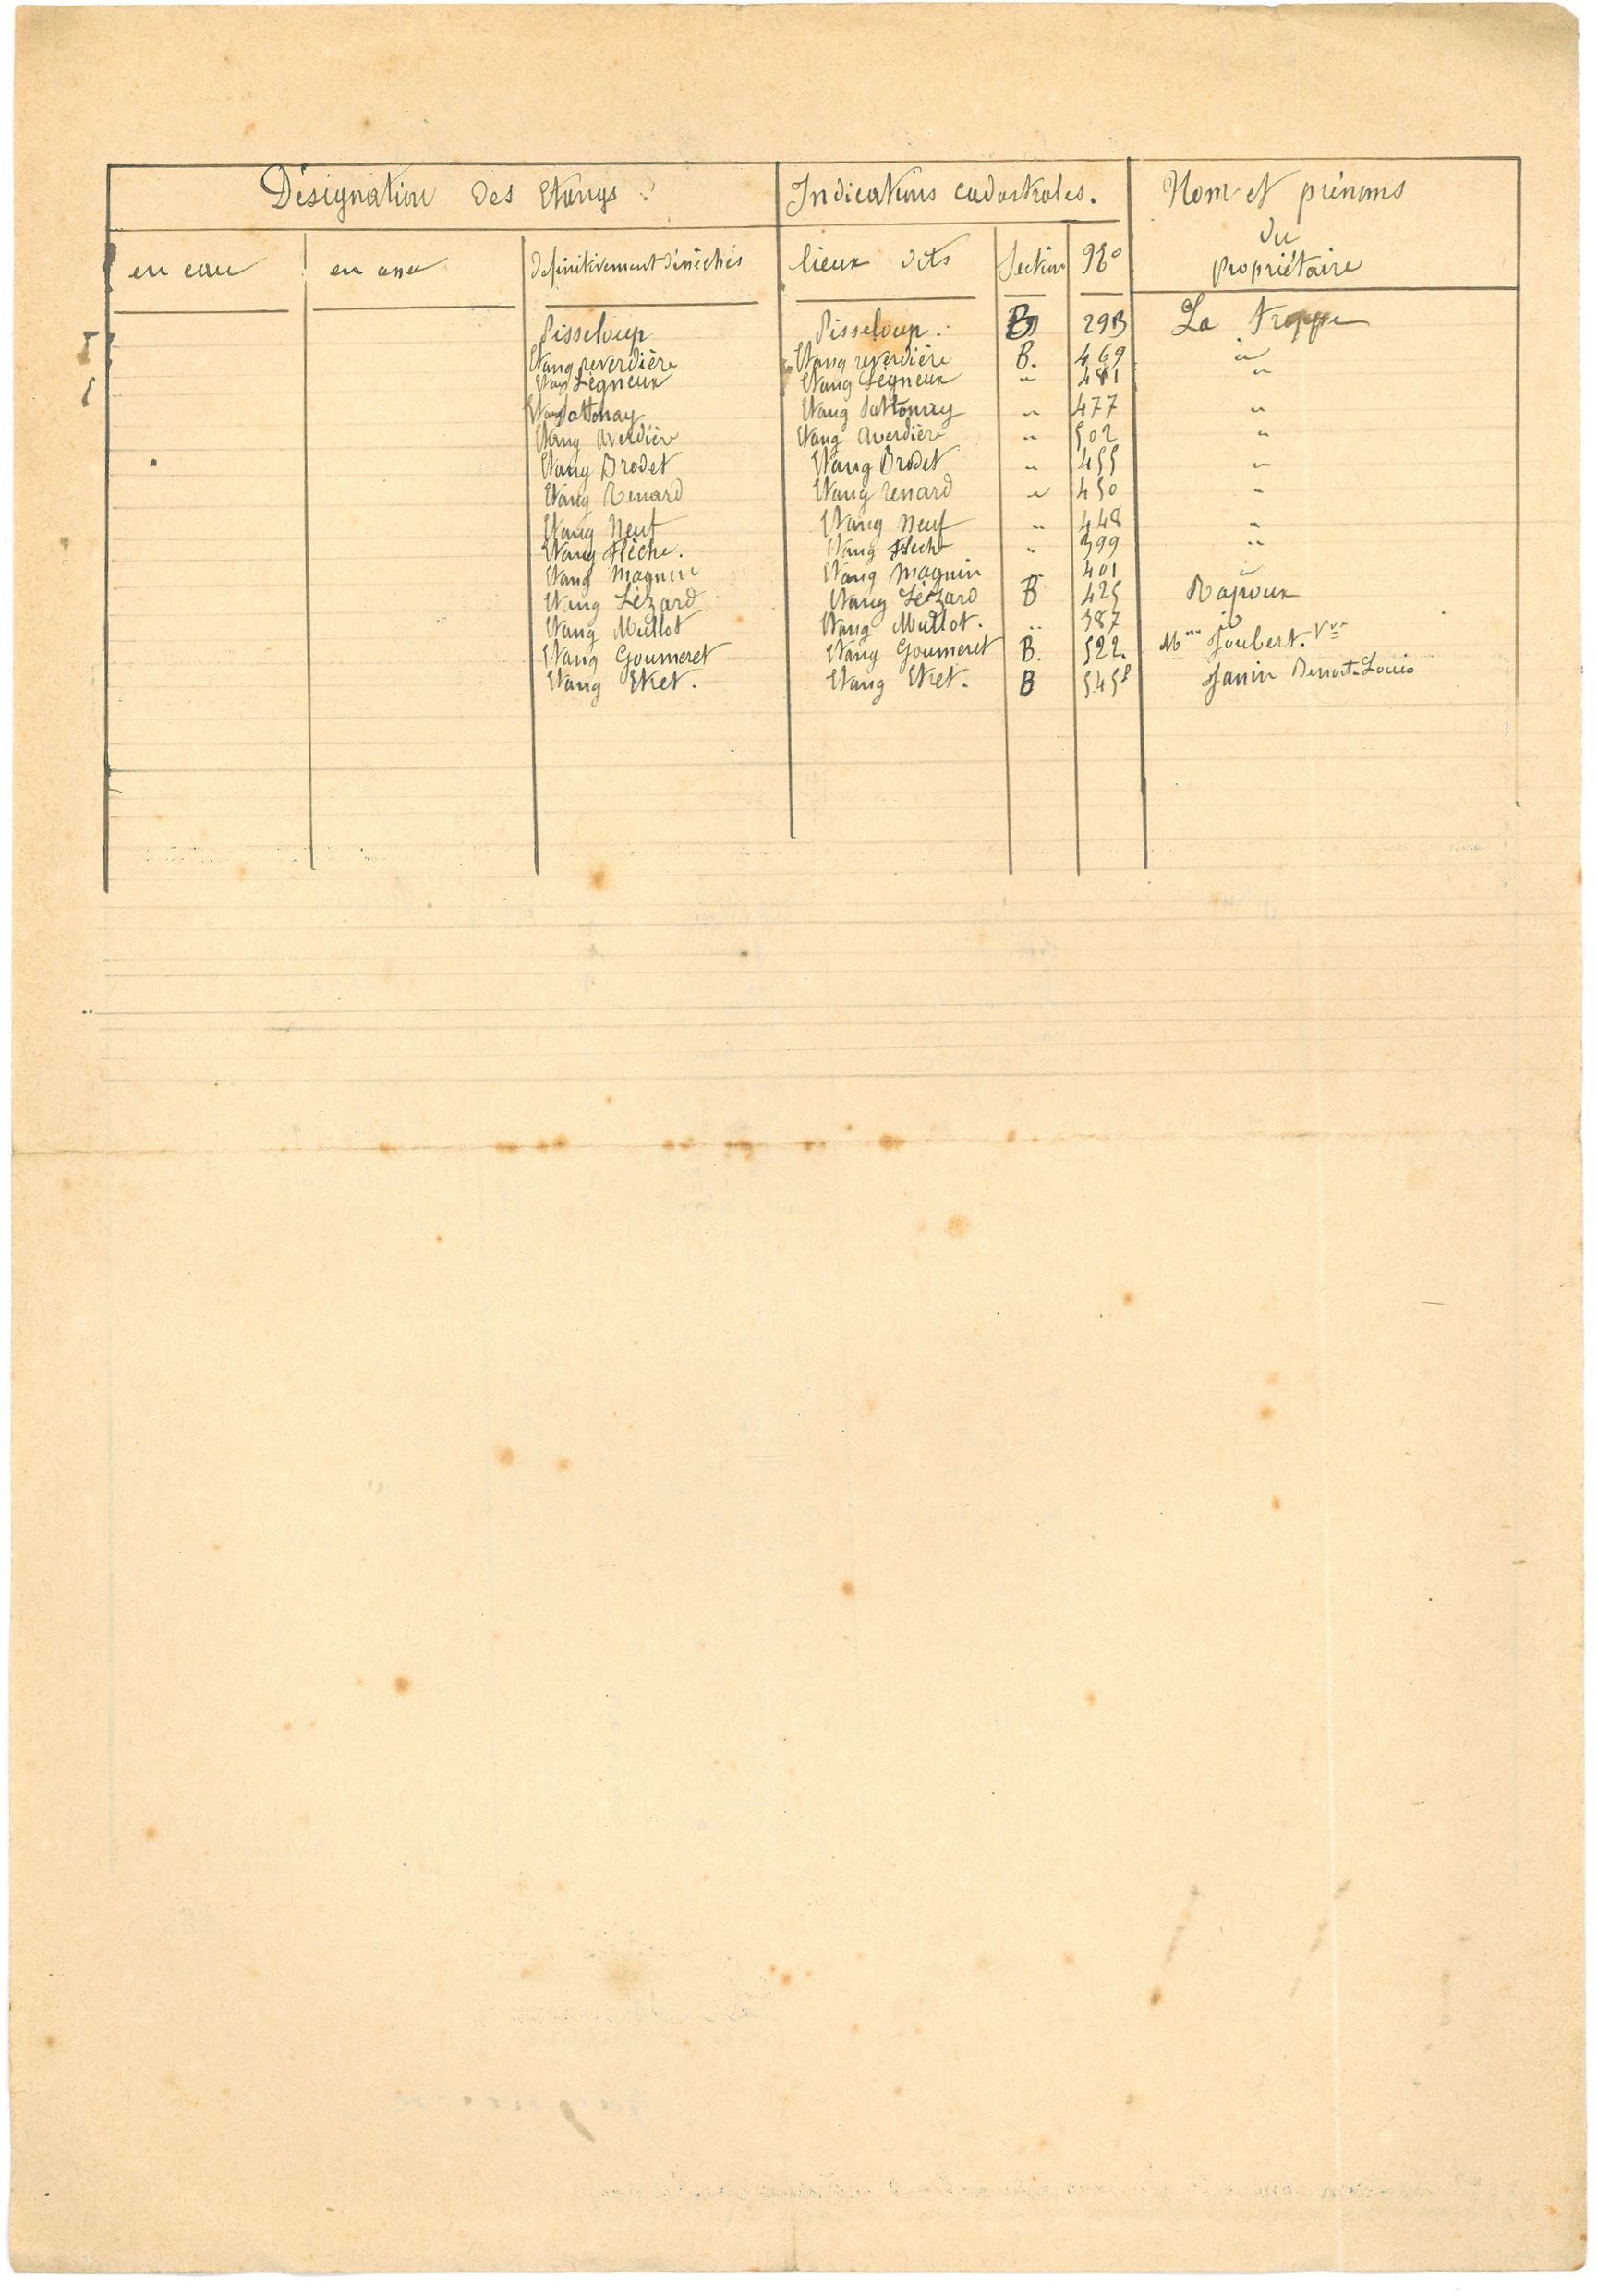 Désignation des Etangs. Indications cadastrales. Nom et prénoms
du
propriétaire
en eau en assec définitivement déséchés lieux dits Section No
Pisseloup Pisseloup. B 293 La Trappe
Etang reverdière Etang reverdière B. 469 "
Etang Légneux Etang Légneux " 481 "
Etang Pattonay Etang Pattonay " 477 "
Etang Averdière Etang Averdière " 502 "
Etang Brodet Etang Brodet " 455 "
Etang Renard Etang renard " 450 "
Etang Neuf Etang Neuf " 448 "
Etang Flèche. Etang Flèche " 399 "
Etang Magnin Etang Magnin " 401 "
Etang Lézard Etang Lézard B 425 Rapoux
Etang Mullot Etang Mullot. " 387
Etang Goumeret Etang Goumeret B. 522. Mme Joubert. Vve
Etang Etret. Etang Etret. B 545 Janin Benoit-Louis